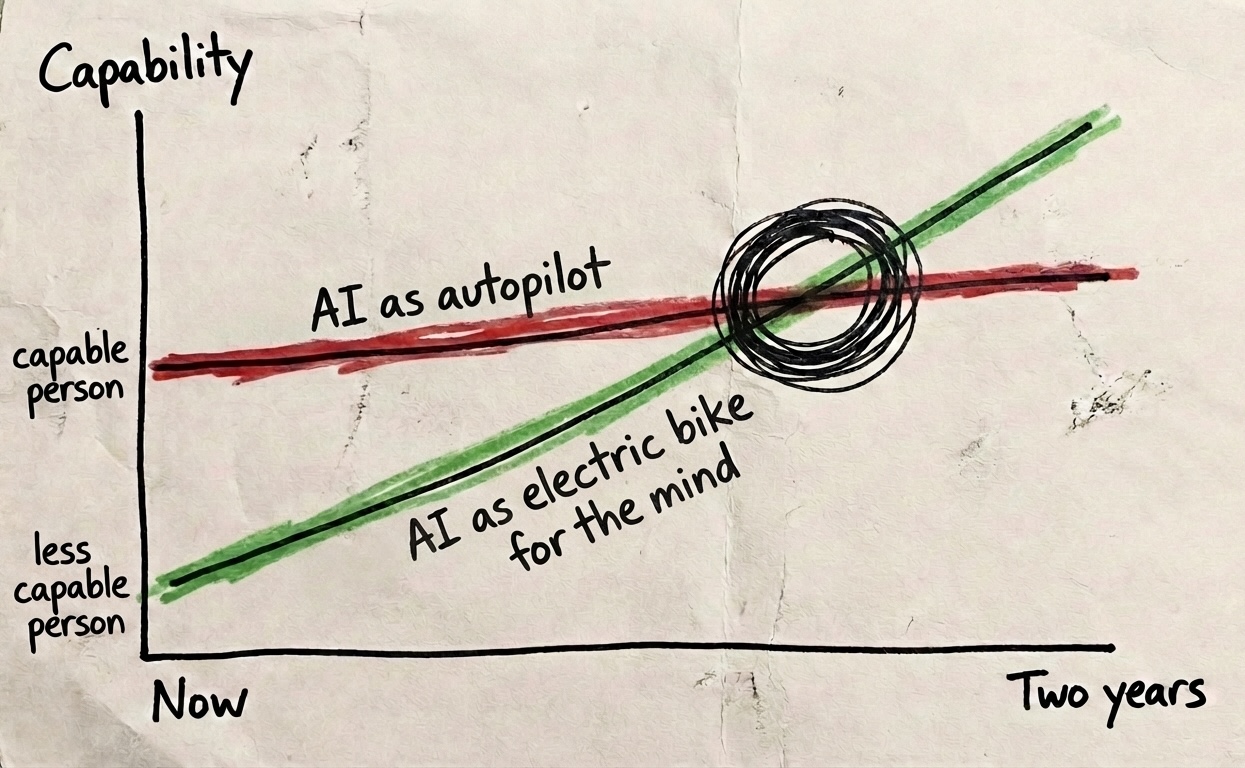 Capability
AI as autopilot
capable
person
AI as electric bike
for the mind
less
capable
person
Now
Two years